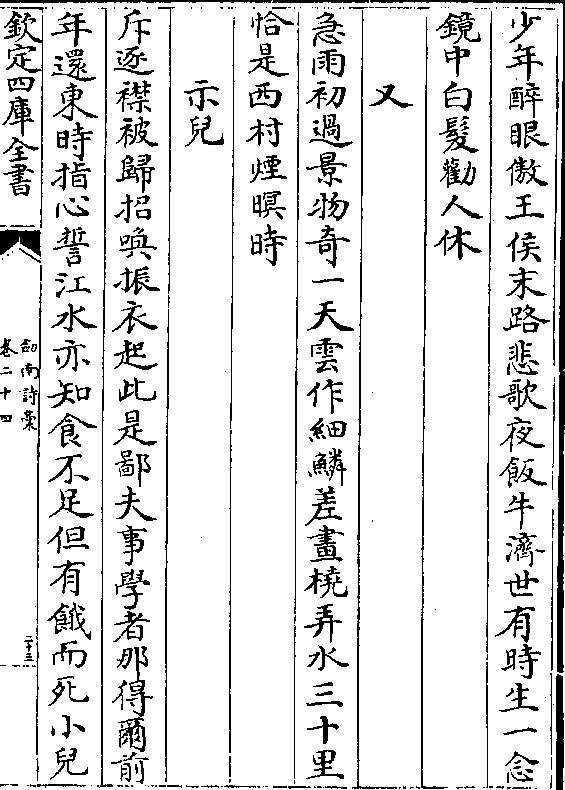 少年醉眼傲王侯末路悲歌夜飯牛濟世有時生一念
鏡中白髮勸人休
又
急雨初過景物奇一天雲作細鱗差畫橈弄水三十里
恰是西村煙暝時
示兒
斥逐襟被歸招喚振衣起此是鄙夫事學者那得爾前
年還東時指心誓江水亦知食不足但有餓而死小兒
欽定四庫全書
劒南詩稾
卷二十四
二十三